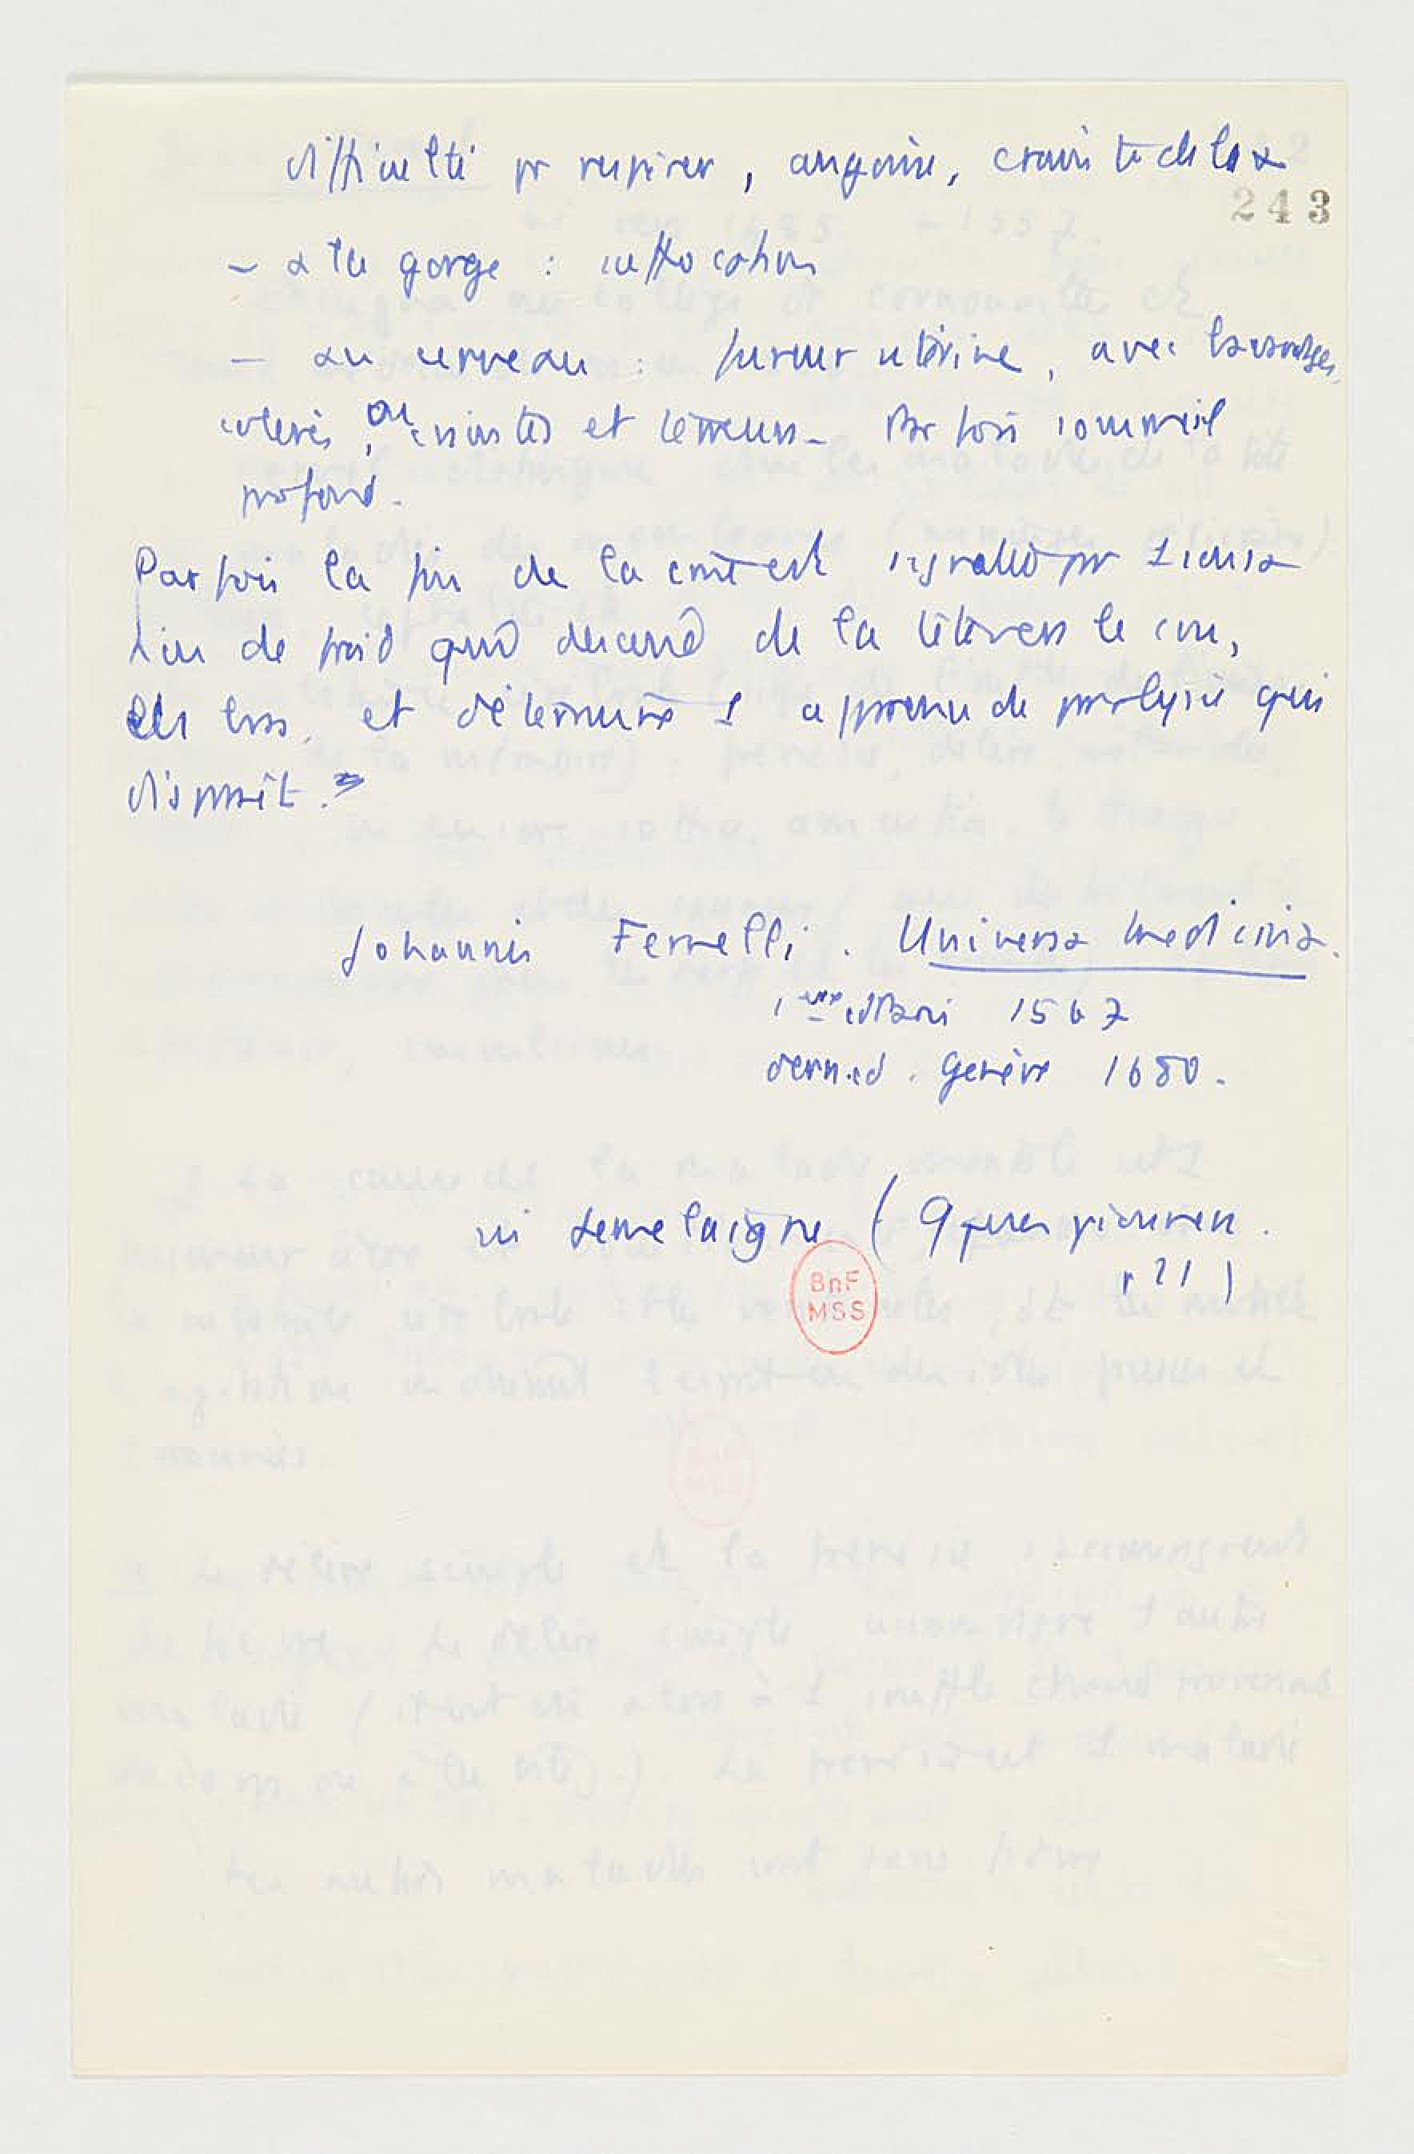 difficulté pr respirer, angoisse, crainte de la †
243
– à la gorge : suffocation
– au cerveau : fureur utérine, avec bavardages,
colères, ou craintes et terreurs – Parfois sommeil
profond.
Parfois la fin de la crise est signalée pr 1
de froid qui descend de la tête vers le cou,
les bras, et détermine 1 apparence de paralysie qui
disparaît.
Johannis Fernelli. Universa Medicina.
1ère édition 1567
dern. ed. Genève 1680.
in Semelaigne (Qques pionniers.
p 21)
BnF
MSS